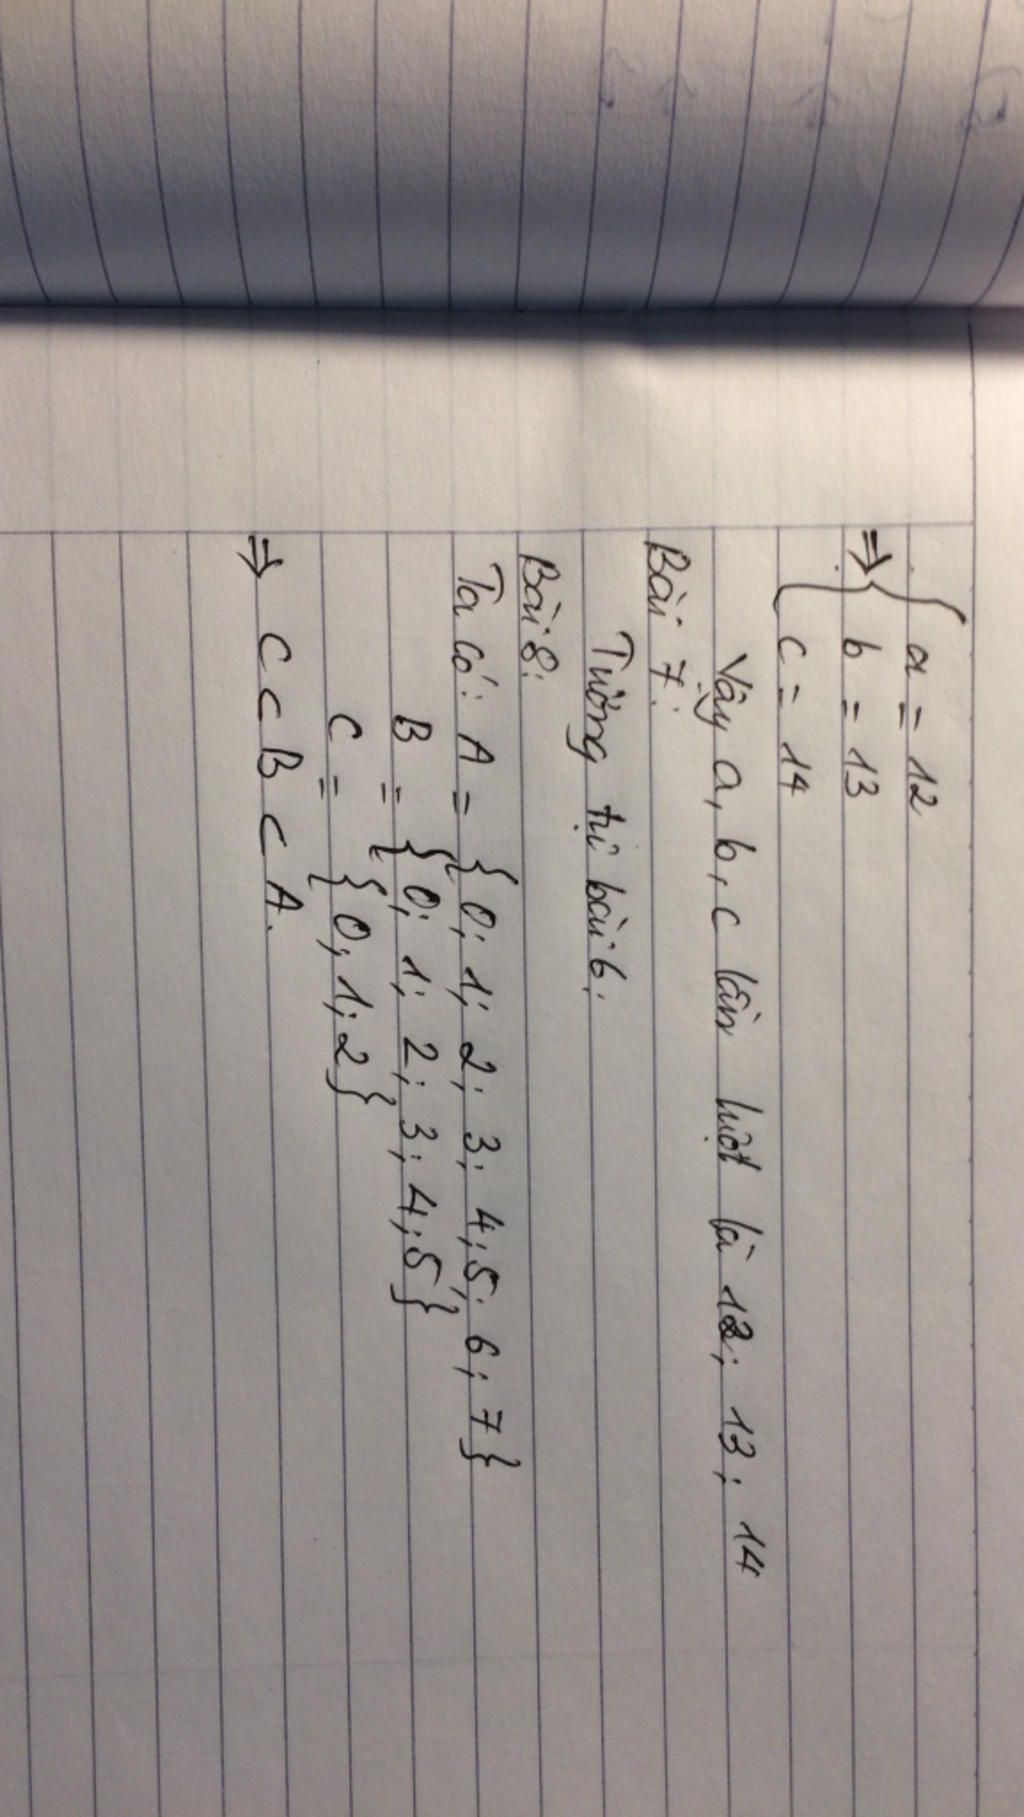 ⇒ { a = 12
b = 13
c = 14
Vậy a, b, c lần lượt là 12; 13; 14
Bài 7:
Tương tự bài 6.
Bài 8:
Ta có: A = {0; 1; 2; 3; 4; 5; 6; 7}
B = {0; 1; 2; 3; 4; 5}
C = {0; 1; 2}
⇒ C ⊂ B ⊂ A.